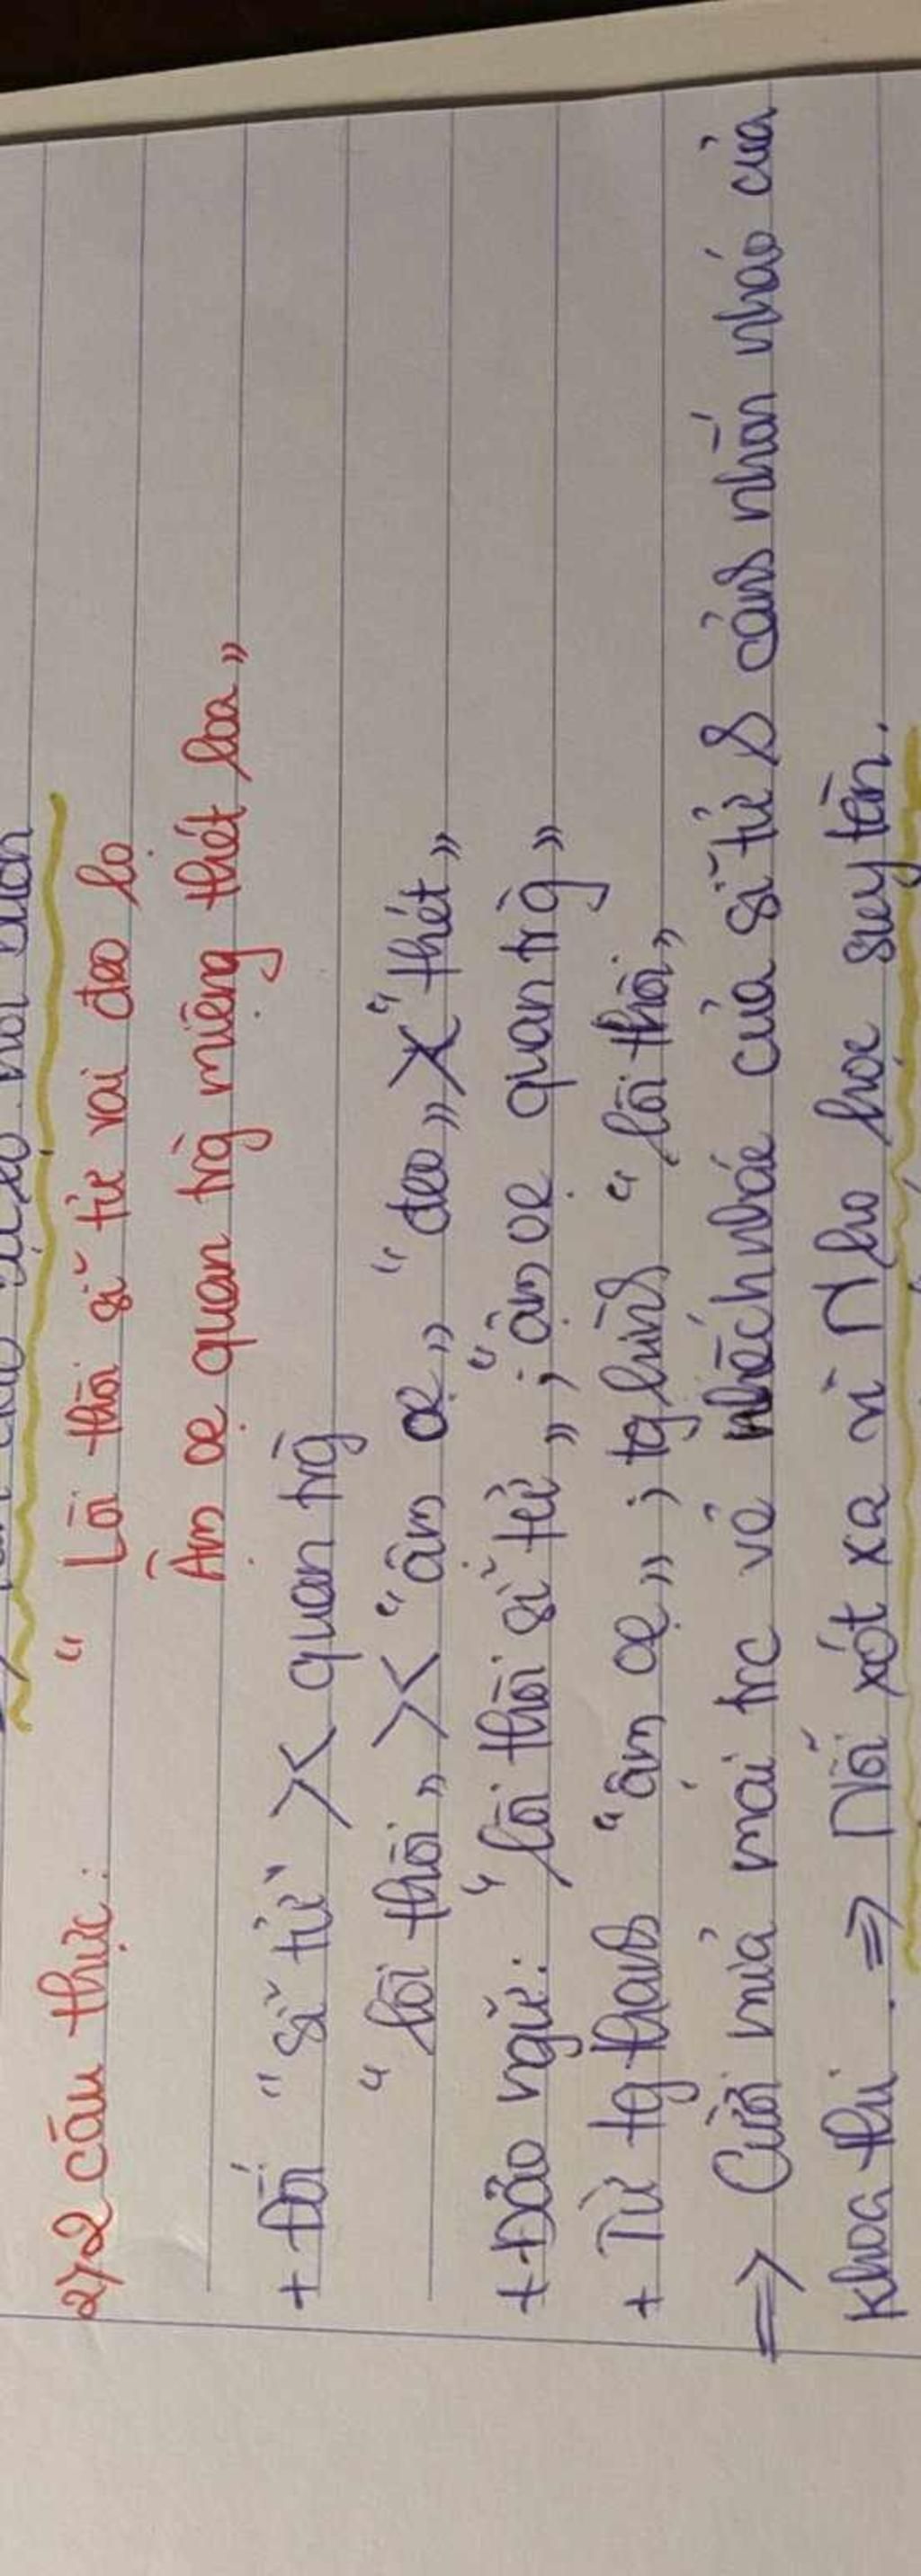 2, 2 câu thực: " Lôi thôi sĩ tử vai đeo lọ
Ậm oẹ quan trg miệng thét loa"
+ Đối "sĩ tử" >< quan trg
"lôi thôi" >< "ậm oẹ", "đeo" >< "thét"
+ Đảo ngữ: "lôi thôi sĩ tử"; "ậm oẹ quan trg"
+ Từ tg thanh "ậm oẹ"; tg hình "lôi thôi"
=> Cười mỉa mai trc vẻ nhếch nhác của sĩ tử & cảnh nhốn nháo của
khoa thi. => Nỗi xót xa vì Nho học suy tàn.